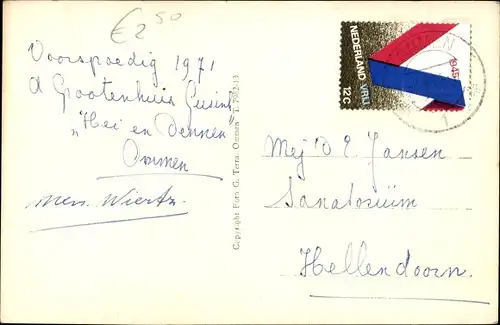 € 2 50
Voorspoedig 1971
d Grootenhuis
„Hei en Dennen
Ommen
mevr. Wiertz.
Copyright Foto G. Tetra. Ommen
NEDERLAND VRIJ
12c
1945
1
Mej D E Jansen
Sanatorium
Hellendoorn.